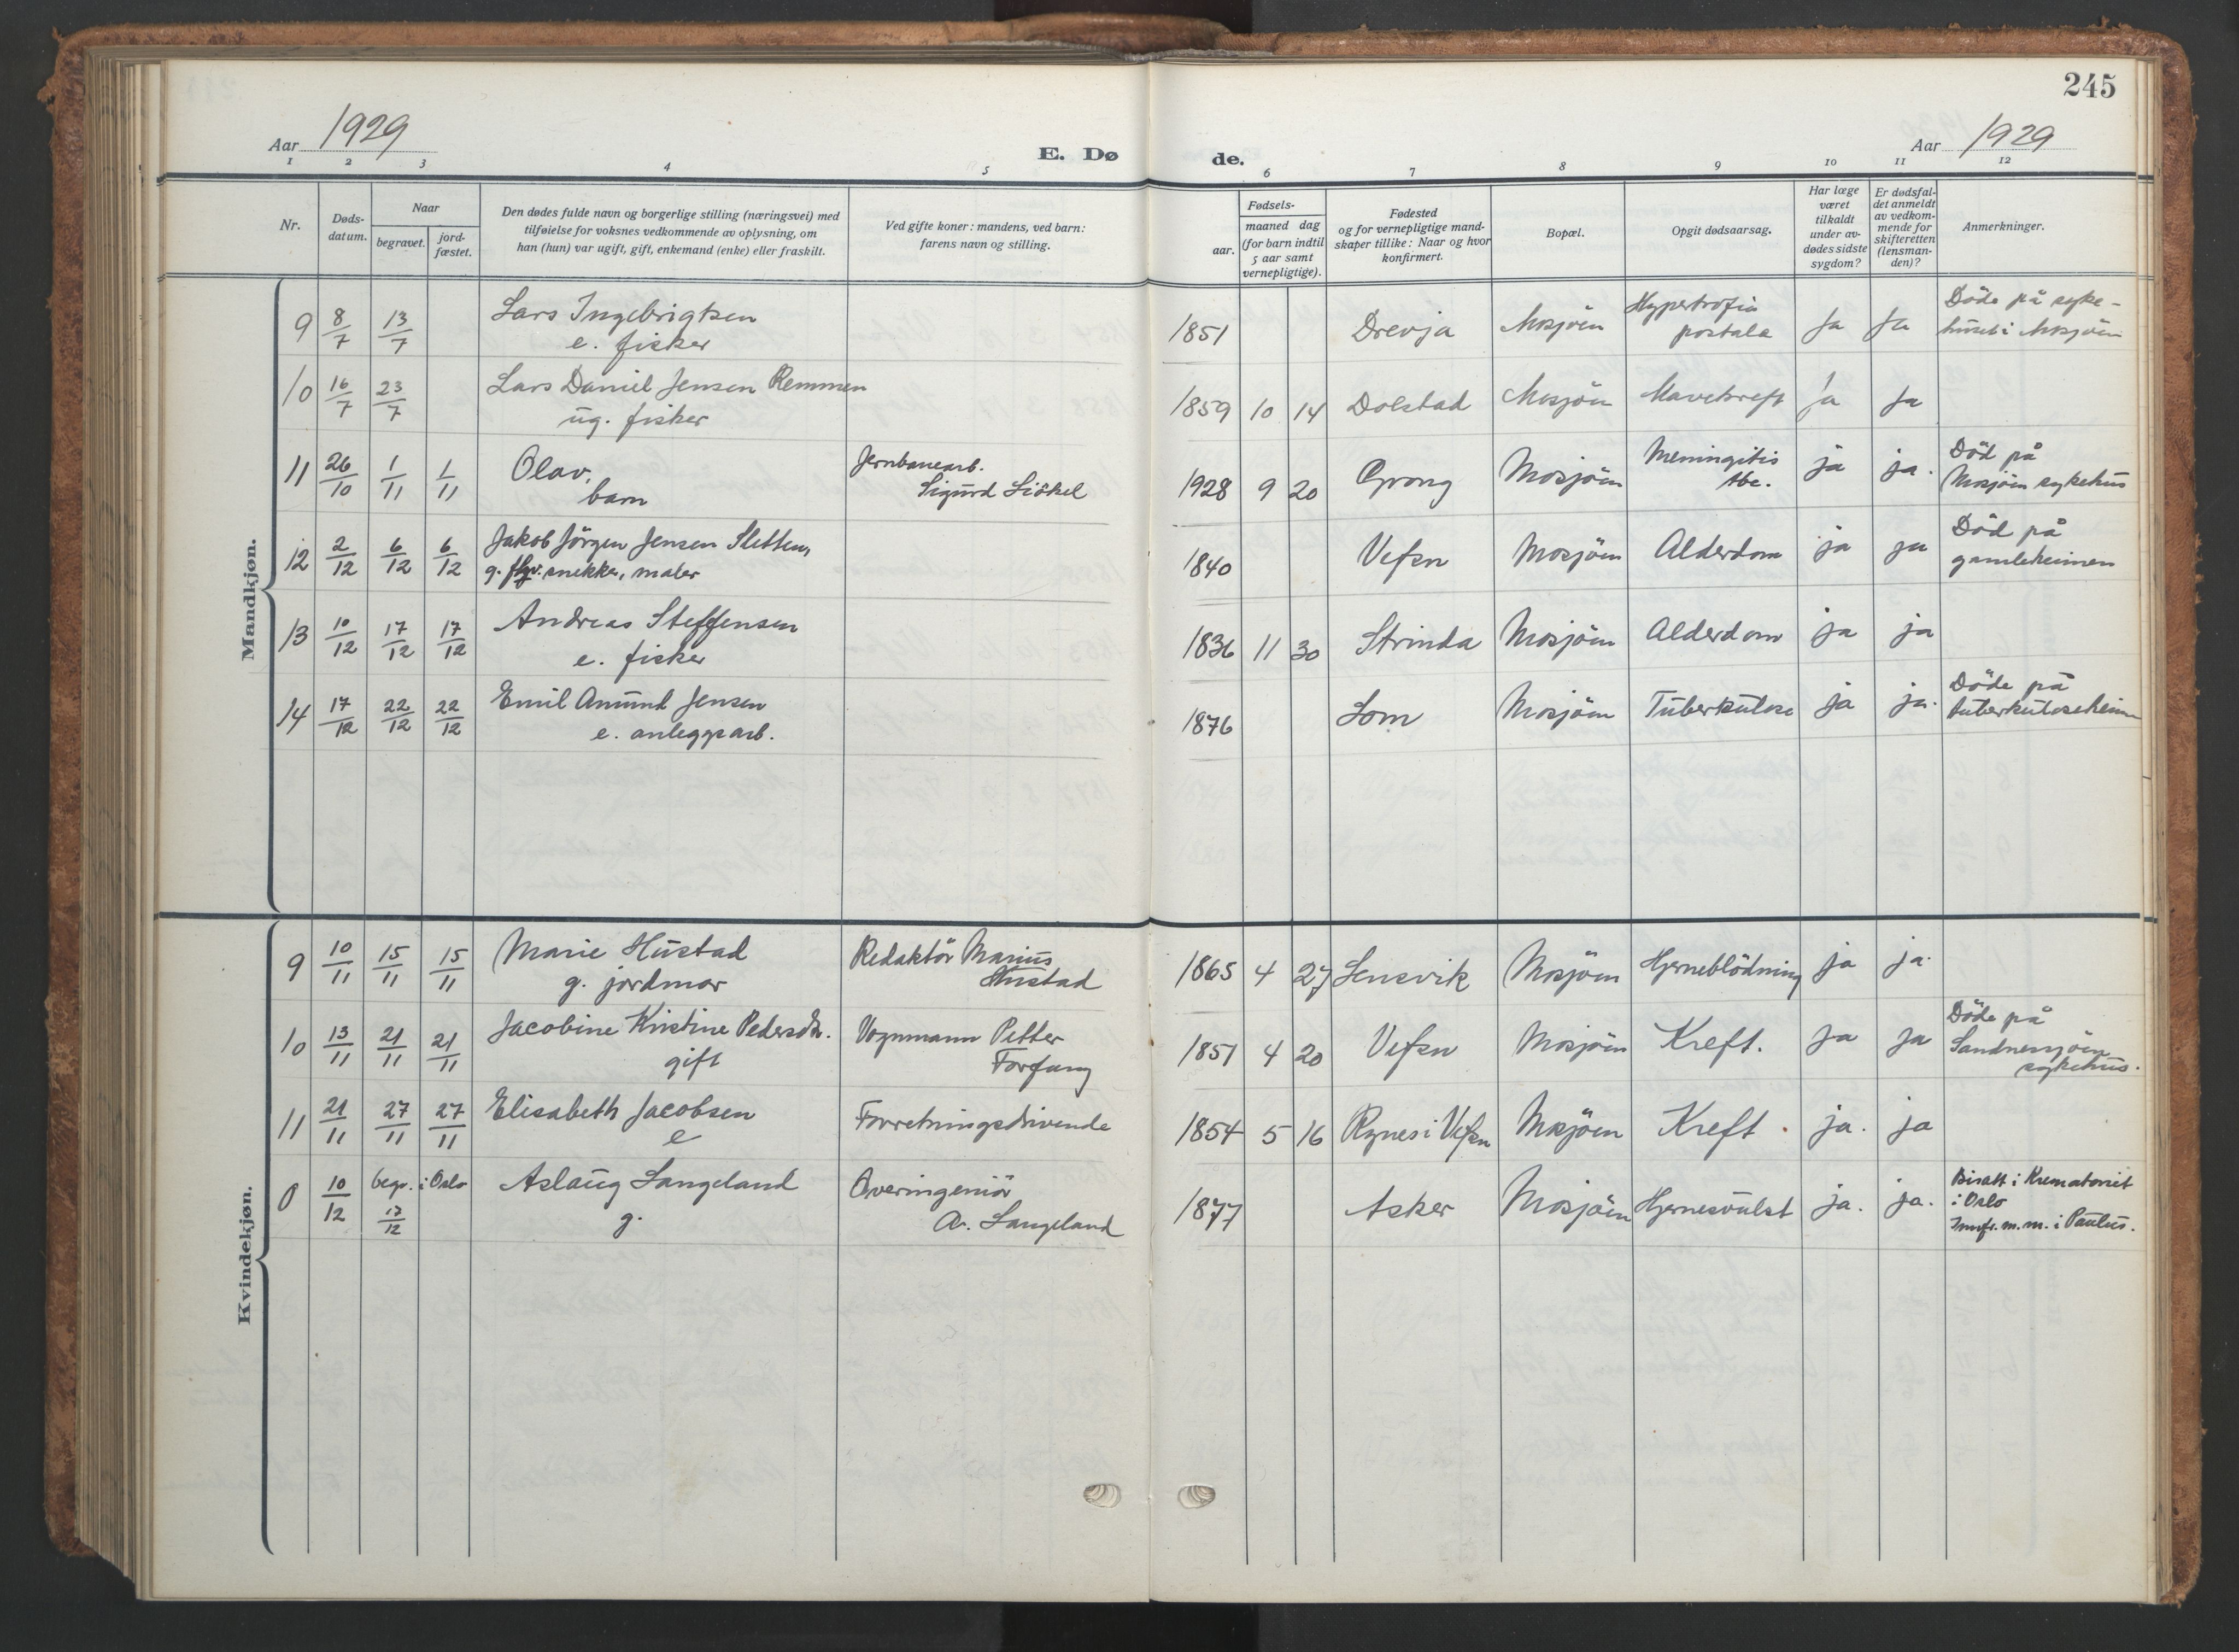 245
Aar 1929
E. Døde.
Aar 1929
1 2 3 4 5 6 7 8 9 10 11 12
Nr.
Døds-
datum.
Naar
begravet.
jord-
fæstet.
Den dødes fulde navn og borgerlige stilling (næringsvei) med
tilføielse for voksnes vedkommende av oplysning, om
han (hun) var ugift, gift, enkemand (enke) eller fraskilt.
Ved gifte koner: mandens, ved barn:
farens navn og stilling.
Fødsels-
aar.
maaned dag
(for barn indtil
5 aar samt
vernepligtige).
Fødested
og for vernepligtige mand-
skaper tillike: Naar og hvor
konfirmert.
Bopæl.
Opgit dødsaarsag.
Har læge
været
tilkaldt
under av-
dødes sidste
sygdom?
Er dødsfal-
det anmeldt
av vedkom-
mende for
skifteretten
(lensman-
den)?
Anmerkninger.
Mandkjøn.
9 8/7 13/7 Lars Ingebrigtsen
e. fisker
1851 Drevja Mosjöen Hypertrofia
postala
Ja Ja Döde på syke-
huset i Mosjöen
10 16/7 23/7 Lars Daniel Jensen Remmen
ug. fisker
1859 10 14 Dolstad Mosjöen Mavekreft ja ja
11 26/10 1/11 1/11 Olav,
barn
Jernbanearb.
Sigurd Liökel
1928 9 20 Grong Mosjöen Meningitis
tbc.
ja ja. Död på
Mosjöen sykehus
12 2/12 6/12 6/12 Jakob Jörgen Jensen Sletten,
g. snekker, maler
1840 Vefsn Mosjöen Alderdom ja ja Död på
gamleheimen
13 10/12 17/12 17/12 Andreas Steffensen
e. fisker
1836 11 30 Strinda Mosjöen Alderdom ja ja
14 17/12 22/12 22/12 Emil Amund Jensen
e. anleggsarb.
1876 Lom Mosjöen Tuberkulose ja ja. Döde på
tuberkuloseheim
Kvindekjøn.
9 10/11 15/11 15/11 Marie Hustad
g. jordmor
Redaktör Marius
Hustad
1865 4 27 Lensvik Mosjöen Hjerneblödning ja ja.
10 13/11 21/11 21/11 Jacobine Kristine Pedersdtr.
gift
Vognmann Petter
Forfang
1851 4 20 Vefsn Mosjöen Kreft. ja ja Döde på
Sandnessjöen
sykehus.
11 21/11 27/11 27/11 Elisabeth Jacobsen
e
Forretningsdrivende
1854 5 16 Rynes i Vefsn Mosjöen Kreft. ja. ja
0 10/12 begr. i Oslo
17/12
Aslaug Langeland
g.
Overingeniör
A. Langeland
1877 Asker Mosjöen Hjernesvulst ja. ja. Bisatt i Krematoriet
i Oslo
m.m. i Paulus.